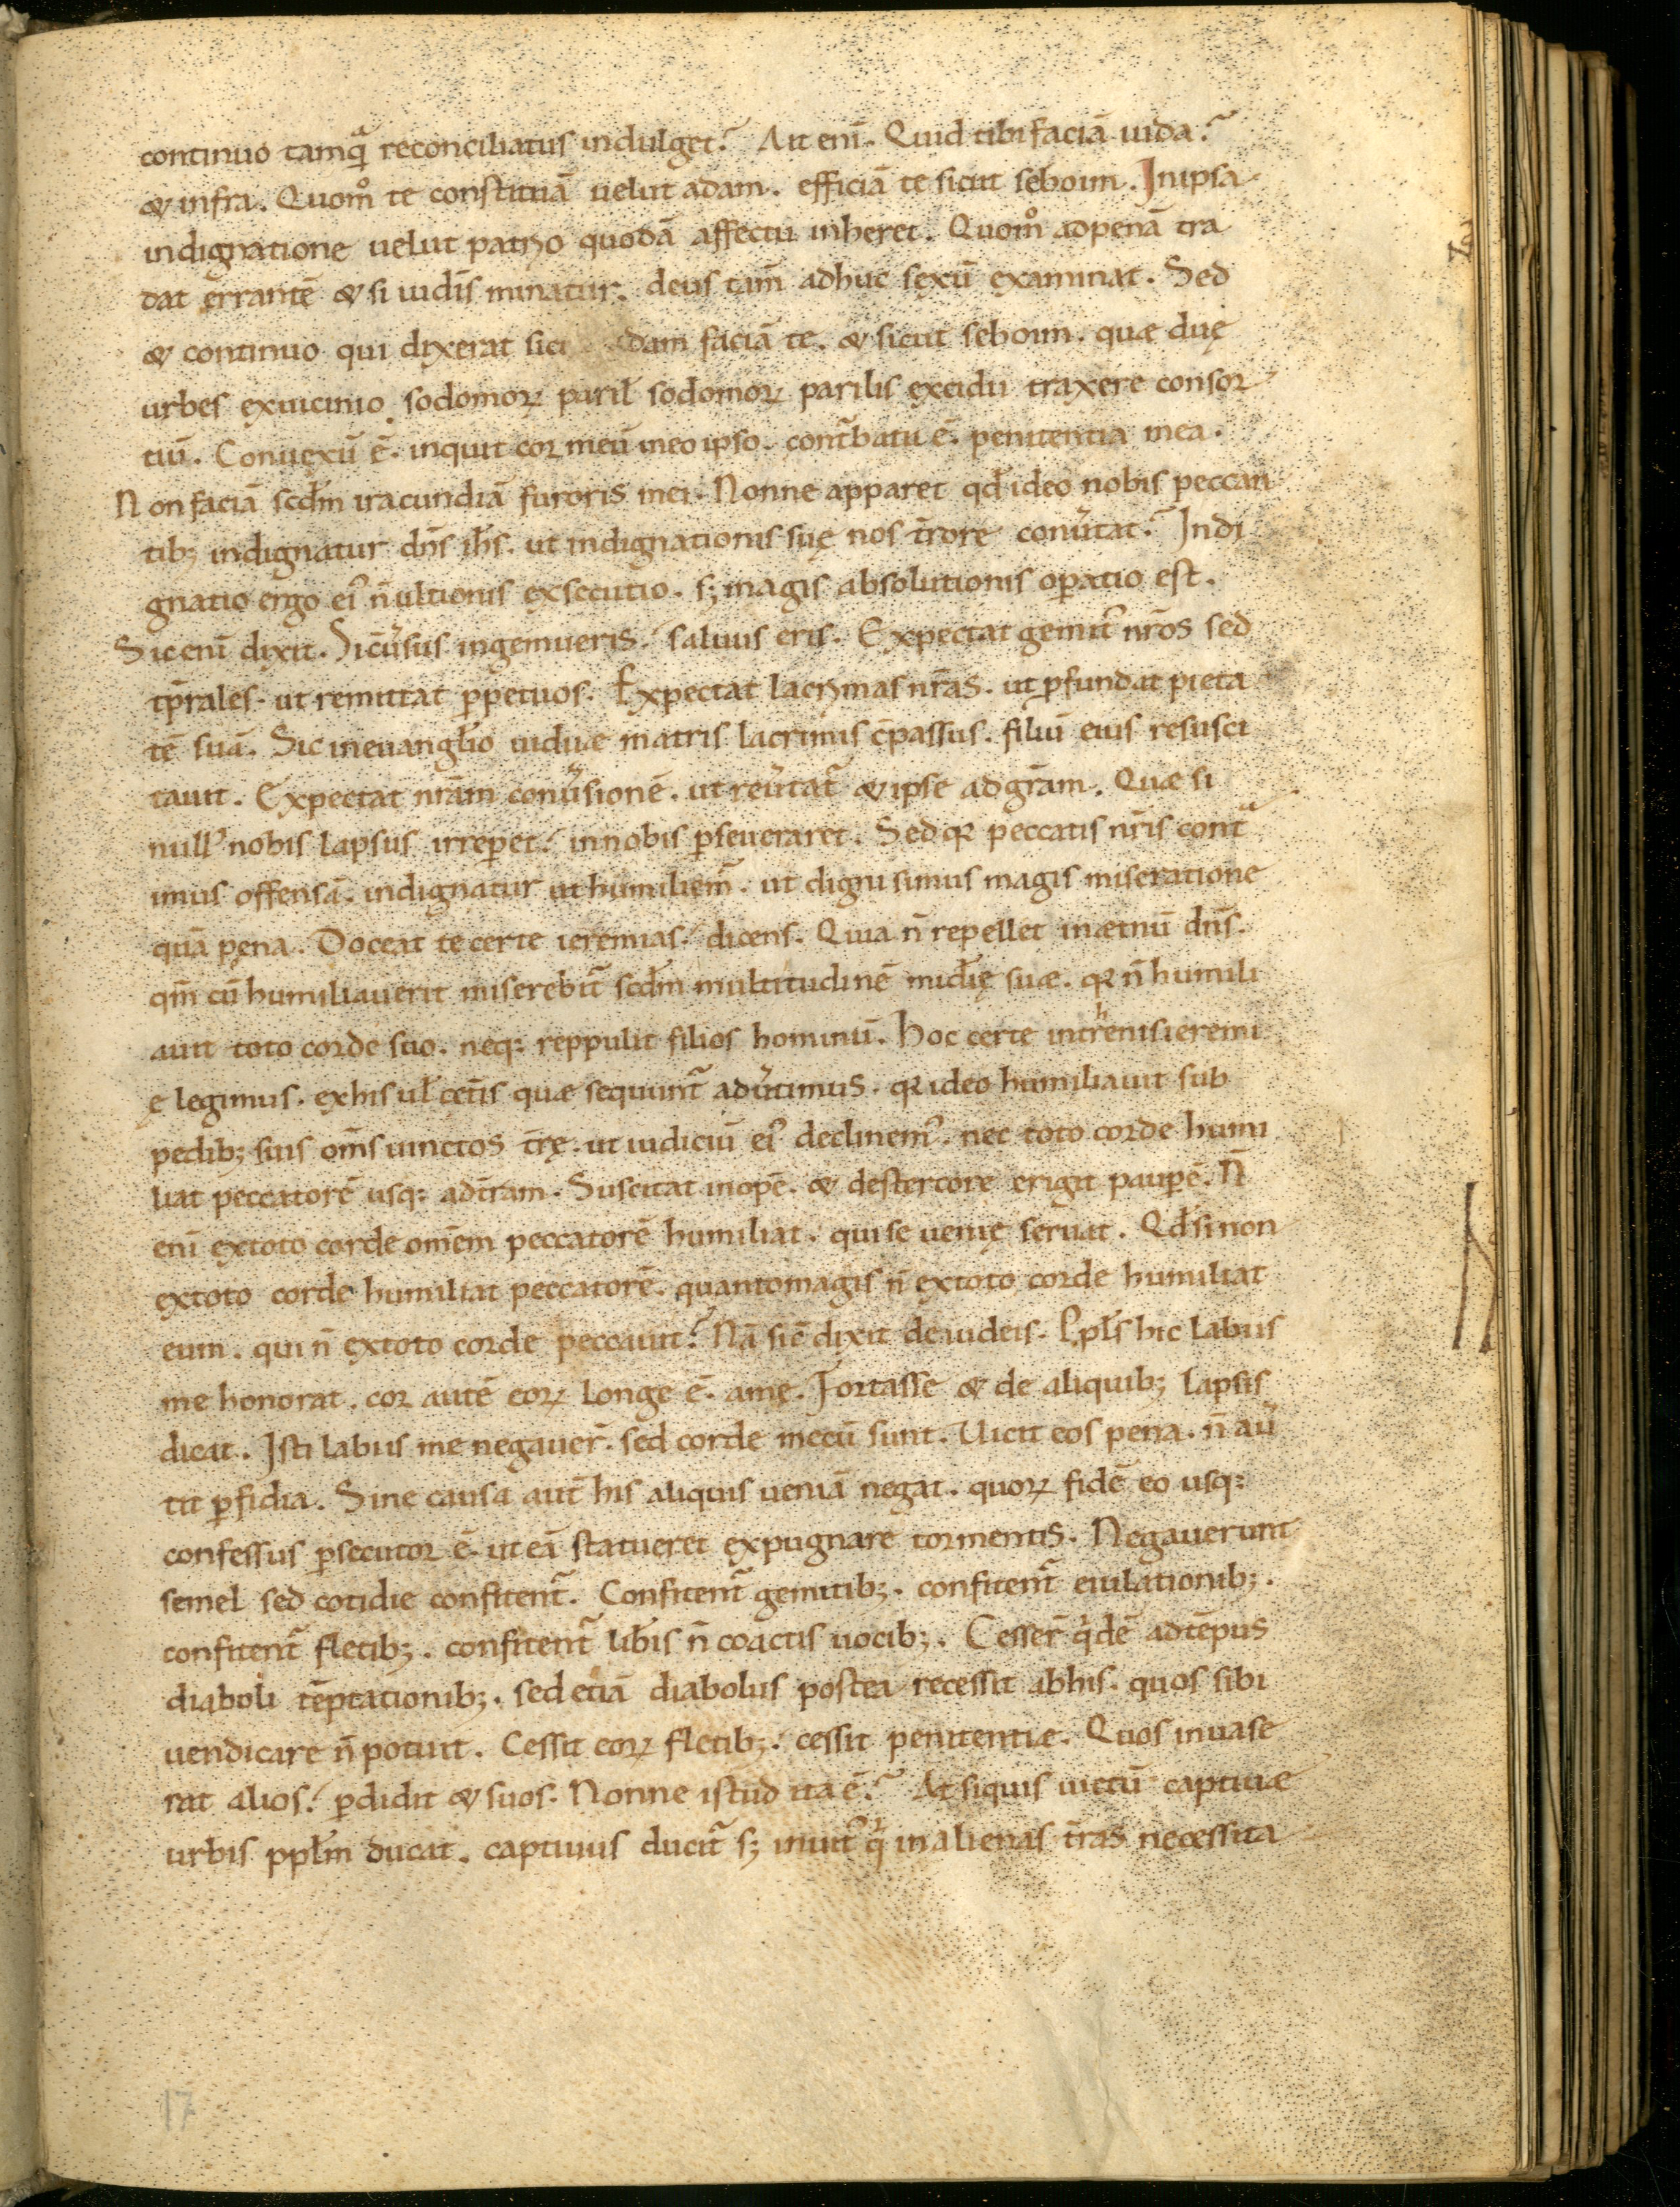 continuo tamqᷓ reconciliatus indulget? Ait eni᷒. Quid tibi faciā iuda?
& infra. Quom̊ te constituā uelut adam. efficiā te sicut seboim. In ipsa
indignatione uelut patrio quodā affectu inheret. Quom̊ ad penā tra
dat errantē & si iudis̄ minatur. deus tam̄ adhuc sexū examinat. Sed
& continuo qui dixerat sic dam faciā te. & sicut seboim. quae duę
urbes ex uicinio sodomoꝝ paril̄ sodomoꝝ parilis excidii traxere consor
tiū. Conuexū ē. inquit cor meū meo ipso. cont̄batu ē. penitentia mea.
Non faciā scd̄m iracundiā furoris mei. Nonne apparet qd̄ ideo nobis peccan
tib; indignatur dn̄s ih̄s. ut indignationis suę nos t̄rore conu̓tat? Indi
gnatio ergo ei᾽ n̄ ultionis exsecutio. s; magis absolutionis oꝑatio est.
Sic enī dixit. Si cu̓sus ingemueris. saluus eris. Expectat gemit᾽ nr̄os sed
tp̄rales. ut remittat ꝑpetuos. Expectat lacrimas nr̄as. ut ꝓfundat pieta
tē suā. Sic in euangl̄io uiduae matris lacrimis c̄passus. filiū eius resusci
tauit. Expectat nr̄am conu̓sionē. ut reu̓tat᷑ & ipse ad gr̄am. Quae si
null᾽ nobis lapsus irreꝑet. in nobis ꝑseueraret. Sed qꝛ peccatis nr̄is contᷓ
imus offensā. indignatur ut humiliem᷑. ut digni simus magis miseratione
quā pęna. Doceat te certe ieremias. dicens. Quia n̄ repellet in aetnū dn̄s.
qm̄ cū humiliauerit miserebit᷑ scd̄m multitudinē mid̄ię suae. qꝛ n̄ humili
auit toto corde suo. neq: reppulit filios hominū. Hoc certe in tr̓enis ieremi
ę legimus. ex his ul̄ cet̄is quae sequunt᷑ adu̓timus. qꝛ ideo humiliauit sub
pedib; suis om̄s uinctos t̄rę. ut iudiciū ei᾽ declinem᾽. nec toto corde humi
liat peccatorē usq: ad t̄ram. Suscitat inopē. & de stercore erigit pauꝑē. N̄
enī ex toto corde omēm peccatorē humiliat. qui se uenię seruat. Qd̄ si non
ex toto corde humiliat peccatorē. quanto magis n̄ ex toto corde humiliat
eum. qui n̄ ex toto corde peccauit? Nā sic̄ dixit de iudeis. Ppl̄s hic labiis
me honorat. cor autē eoꝝ longe ē. a me. Fortasse & de aliquib; lapsis
dicat. Isti labiis me negauer̄. sed corde mecū sunt. Uicit eos pena. n̄ au̓
tit ꝑfidia. Sine causa aut̄ his aliquis ueniā negat. quoꝝ fidē eo usq:
confessus ꝑsecutor ē. ut eā statueret expugnare tormentis. Negauerunt
semel sed cotidie confitent᷑. Confitent᷑ gemitib;. confitent᷑ eiulationib;.
confitent᷑ fletib;. confitent᷑ lib̄is n̄ coactis uocib;. Cesser̄ qͥdē ad tēpus
diaboli tēptationib;. sed etiā diabolus postea recessit ab his. quos sibi
uendicare n̄ potuit. Cessit eoꝝ fletib;. cessit penitentiae. Quos inuase
rat alios. ꝑdidit & suos. Nonne istud ita ē? At siquis uictū captiuae
urbis ppl̄m ducat. captiuus ducit᷑ s; inuit᾽ qͥ in alienas t̄ras necessita
17